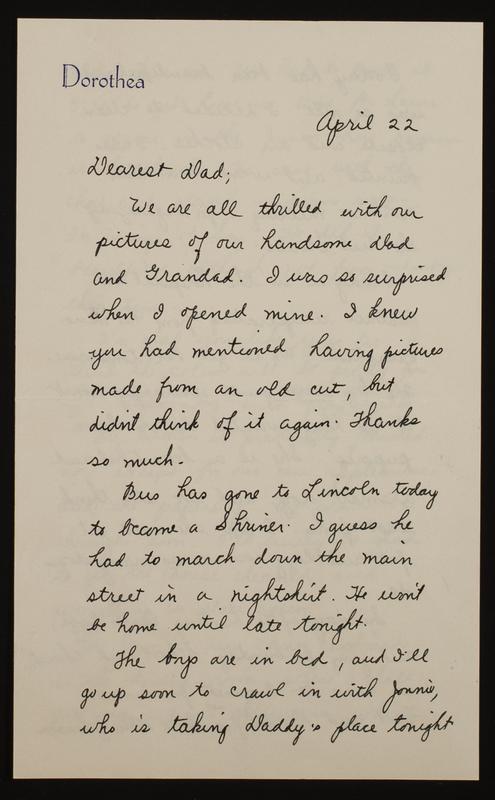 Dorothea
April 22
Dearest Dad;
We are all thrilled with our
pictures of our handsome Dad
and Grandad. I was so surprised
when I opened mine. I knew
you had mentioned having pictures
made from an old cut, but
didn't think of it again. Thanks
so much.
Bus has gone to Lincoln today
to become a Shriner. I guess he
had to march down the main
street in a nightshirt. He won't
be home until late tonight.
The boys are in bed, and I'll
go up soon to crawl in with Jonnie,
who is taking Daddy's place tonight